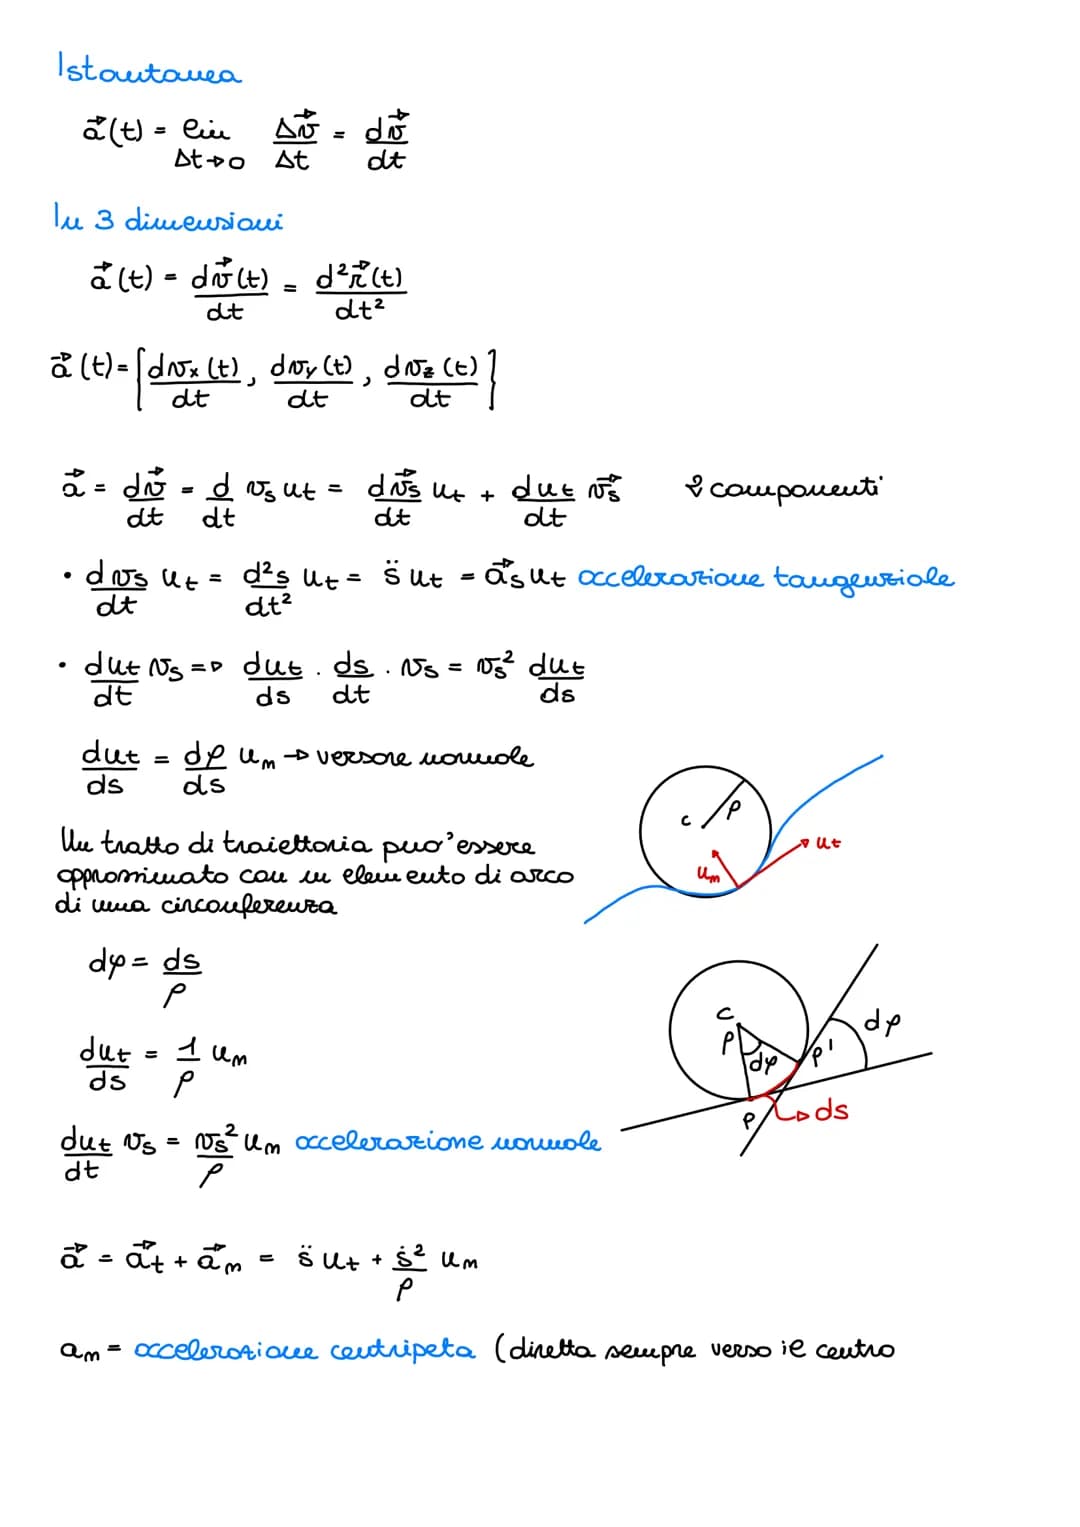 Istantanea
a⃗(t) = lim Δt→0 Δv⃗/Δt = dv⃗/dt
In 3 dimensioni
a⃗(t) = dv⃗(t)/dt = d²r⃗(t)/dt²
a⃗(t) = [dvx(t)/dt, dvy(t)/dt, dvz(t)/dt]
a⃗ = dv⃗/dt = d/dt vs ut = dv⃗s/dt ut + dut/dt v⃗s 2 componenti
• dvs/dt ut = d²s/dt² ut = s̈ ut = a⃗s ut accelerazione tangenziale
• dut/dt vs => dut/ds · ds/dt · vs = vs² dut/ds
dut/ds = dφ/ds un → versore normale
c ρ
ut
un
Un tratto di traiettoria puo' essere
approssimato con un elemento di arco
di una circonferenza
dφ = ds/ρ
c
ρ
dφ
P'
dφ
P
ds
dut/ds = 1/ρ un
dut/dt vs = vs²/ρ un accelerazione normale
a⃗ = a⃗t + a⃗n = s̈ ut + ṡ²/ρ un
an = accelerazione centripeta (diretta sempre verso il centro